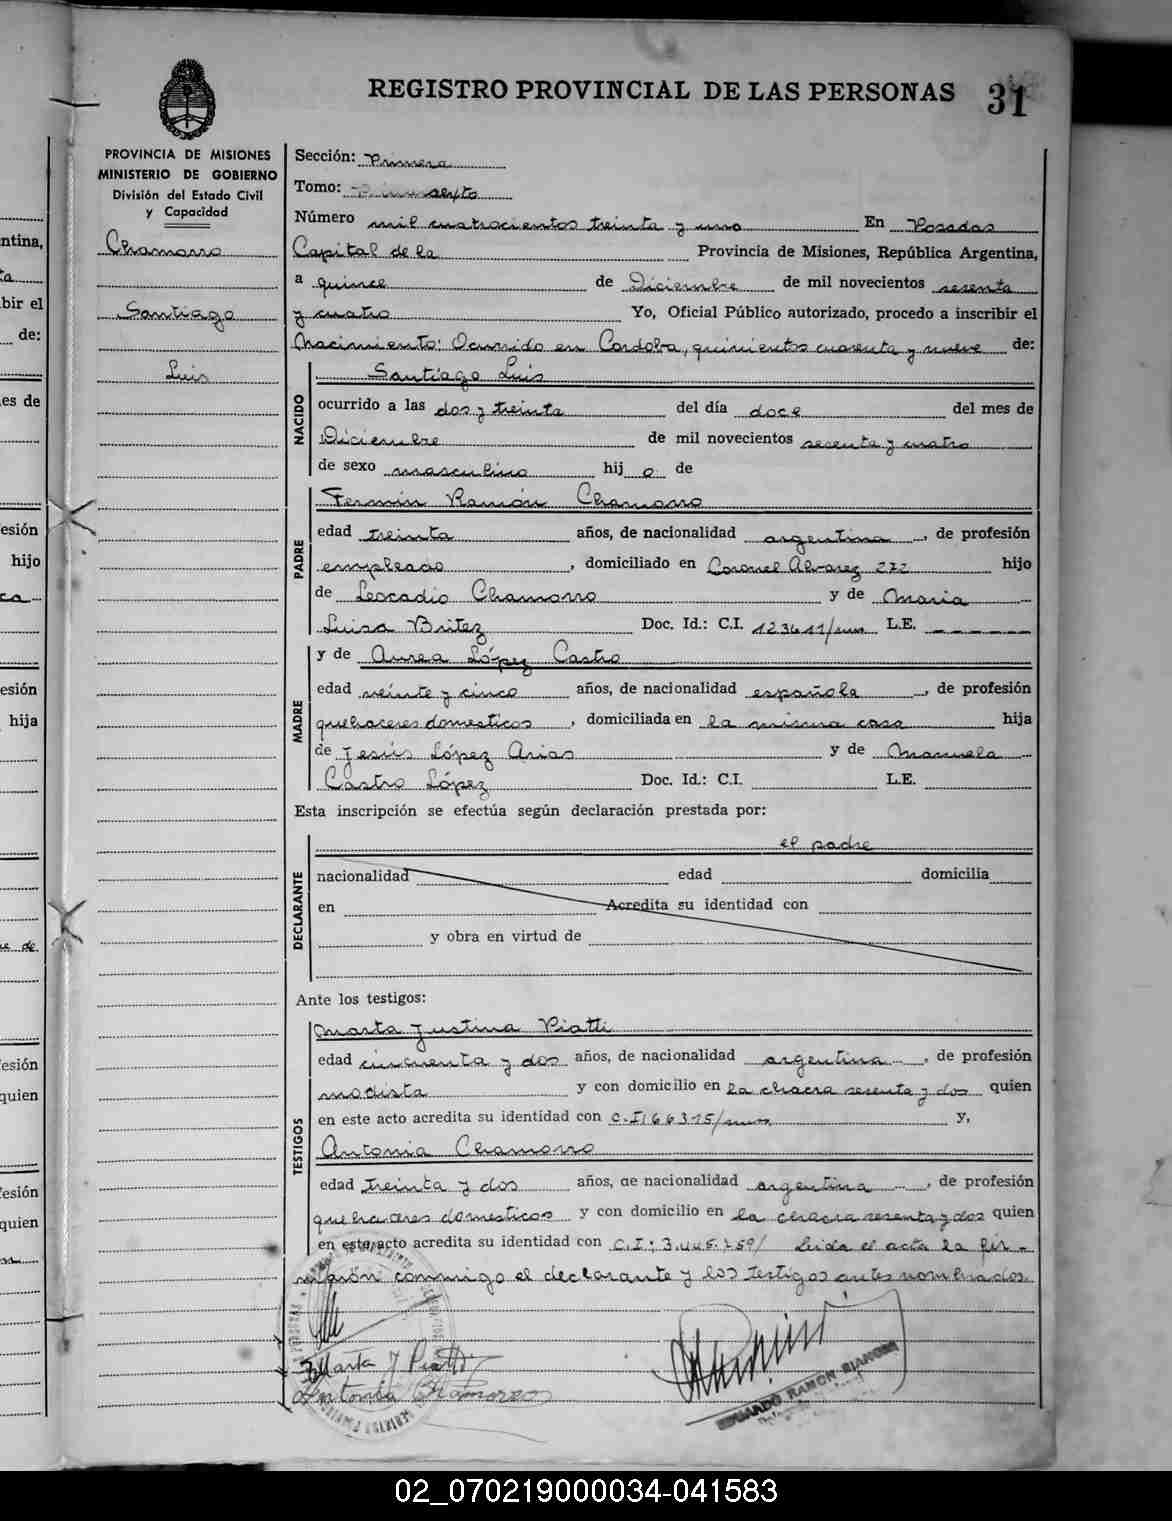 REGISTRO PROVINCIAL DE LAS PERSONAS 31
PROVINCIA DE MISIONES
MINISTERIO DE GOBIERNO
División del Estado Civil
y Capacidad
Chamorro
Santiago
Luis
Sección: Primera
Tomo: sexto
Número mil cuatrocientos treinta y uno En Posadas
Capital de la Provincia de Misiones, República Argentina,
a quince de Diciembre de mil novecientos sesenta
y cuatro Yo, Oficial Público autorizado, procedo a inscribir el
Nacimiento: Ocurrido en Cordoba, quinientos cuarenta y nueve de:
NACIDO
Santiago Luis
ocurrido a las dos y treinta del día doce del mes de
Diciembre de mil novecientos sesenta y cuatro
de sexo masculino hij o de
PADRE
Fermín Ramón Chamorro
edad treinta años, de nacionalidad argentina, de profesión
empleado, domiciliado en Coronel Alvarez 272 hijo
de Leocadio Chamorro y de Maria
Luisa Britez Doc. Id.: C.I. 123611/mnes L.E.
MADRE
y de Aurea López Castro
edad veinte y cinco años, de nacionalidad española, de profesión
quehaceres domesticos, domiciliada en la misma casa hija
de Jesús López Arias y de Manuela
Castro López Doc. Id.: C.I. L.E.
Esta inscripción se efectúa según declaración prestada por:
DECLARANTE
el padre
nacionalidad edad domicilia
en Acredita su identidad con
y obra en virtud de
Ante los testigos:
TESTIGOS
Marta Justina Piatti
edad cincuenta y dos años, de nacionalidad argentina, de profesión
modista y con domicilio en la chacra sesenta y dos quien
en este acto acredita su identidad con C.I. 66315/ y,
Antonia Chamorro
edad treinta y dos años, de nacionalidad argentina, de profesión
quehaceres domesticos y con domicilio en la chacra sesenta y dos quien
en este acto acredita su identidad con C.I: 3.445.759/ Leida el acta la fir-
maron conmigo el declarante y los testigos antes nombrados.
Marta J Piatti
Antonia Chamorro
EDUARDO RAMON
02_070219000034-041583